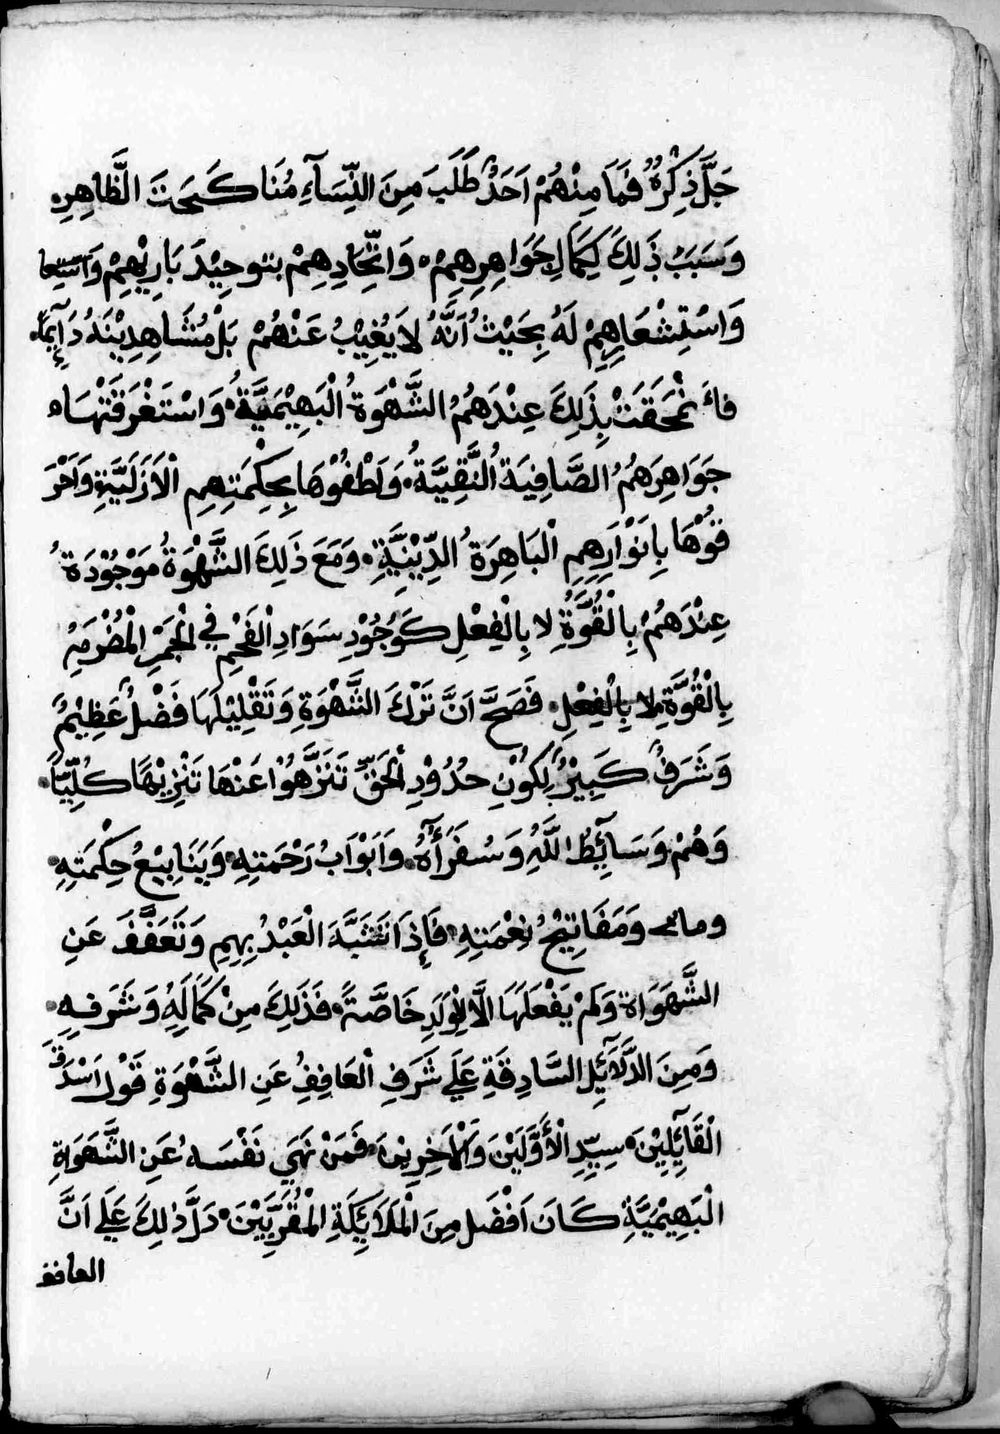 جَلَّ ذِكْرُهُ فَمَا مِنْهُمْ اَحَدٌ طَلَبَ مِنَ النِّسَآءِ مُنَاكَحَتَ الظَّاهِرِ
وَسَبَبُ ذَلِكَ لِكَمَالِ جَوَاهِرِهِمْ وَاتِّحَادِهِمْ بتوحِيْدَ بَارِيْهِمْ وَاستِعا
وَاسْتِشْعَارِهِمْ لَهُ بِحَيْثُ اَنَّهُ لاَ يُغِيْبُ عَنْهُمْ بَلْ مُشَاهِدِيْنَهُ دَآيِماً
فاَنْمَحَقَتْ بِذَلِكَ عِنْدَهُمُ الشَّهْوَةُ الْبَهِيْمَيَّةُ وَاسْتَغْرَقَتْهَا
جَوَاهِرَهُمُ الصَّافِيَةُ النَّقِيَّةُ وَلَطْفُوْهَا بِحِكْمَتِهِمِ الْاَزَلَيَّةِ وَاَحْرَ
قُوْهَا بِاَنْوَارِهِمِ الْبَاهِرَةُ الدِّيْنِيَّةِ وَمَعَ ذَلِكَ الشَّهْوَةُ مَوْجُوْدَةُ
عِنْدَهُمْ بِالْقُوَّةِ لا بِالْفِعْلِ كَوُجُوْدِ سَوَادِ الْفَحْمِ فِي الْجَمْرِ الْمُضْرَمِهِ
بِالْقُوَّةِ لا بِالْفِعْلِ فَصَحَّ اَنَّ تَرْكَ الشَّهْوَةِ وَتَقْلِيْلَهَا فَضْلٌ عَظِيْمٌ
وَشَرَفٌ كَبِيْرٌ لِكَوْنِ حُدُوْدِ الْحَقِّ تَنَزَّهُوْا عَنْهَا تَنْزِيْهًا كُلِّيّاً
وَهُمْ وَسَآئِطُ اللَّهِ وَسُفَرَآؤُهُ وَاَبْوَابُ رَحْمَتِهِ وَيَنَابِيْعُ حِكْمَتِهِ
وَمَفَاتِيْحُ نِعْمَتِهِ فَاِذَا تَشَبَّهَ الْعَبْدُ بِهِمِ وَتَعَفَّفَ عَنِ
الشَّهَوَاة وَلَمْ يَفْعَلَهَا الَّا لِلْوَلَدِ خَاصَّةً فَذَلِكَ مِنْ كَمَالِهِ وَشَرَفِهِ
وَمِنَ الدَّلَآئِلِ السَّادِقَةِ عَلَي شَرَفِ الْعَافِفِ عَنِ الشَّهْوَةِ قَوْلَ اَسْدَقِ
الْقَآئِلِيْنَ سِيِّدِ الْاَوَّلَيْنَ وَالْاَخِرِيْنَ فَمَنْ نَهَي نَفْسَهُ عَنِ الشَّهَوَاةِ
الْبَهِيْمِيَّةِ كَانَ اَفْضَل مِنَ الْمَلَائِكَةِ الْمُقَرَّبِيْنَ دَلَّ ذلِكَ عَلَي اَنَّ
العافف